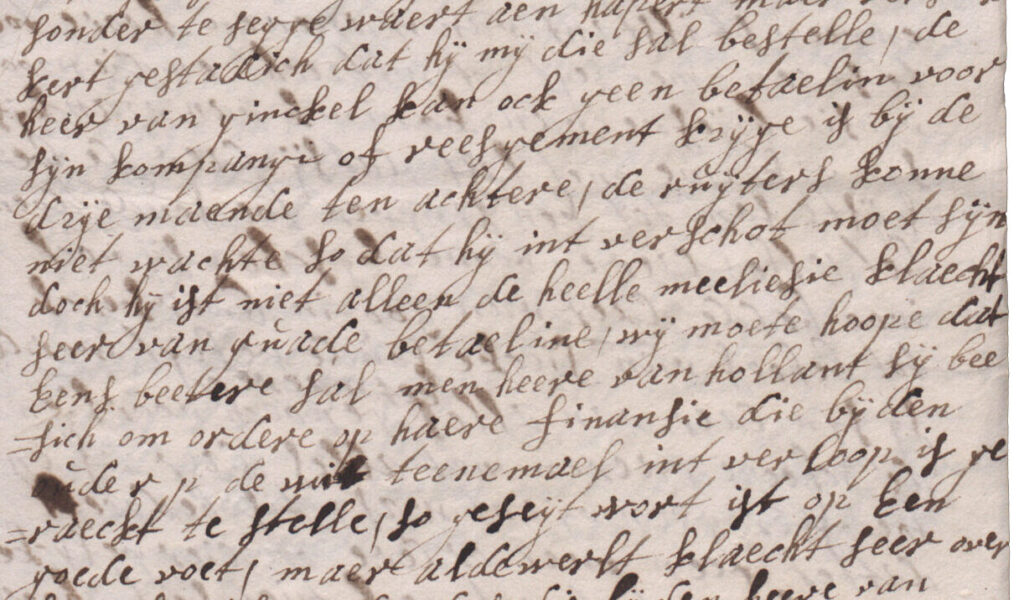 sonder te segge waert aen hapert maer
kert gestadich dat hÿ mÿ die sal bestelle, de
heer van ginckel kan ock geen betaelin voor
sÿn kompangi of reesgement krÿge is bÿ de
drÿe maende ten achtere, de ruÿters konne
niet wachte so dat hÿ int verschot moet sÿn
doch hÿ ist niet alleen de heelle meeliesie klaecht
seer van quade betaeline, wÿ moete hoope dat
eens beetere sal men heere van hollant sÿ bee
=sich om ordere op haere finansie die bÿ den
de teenemael int verloop is ge
=raeckt te stelle, so geseyt wort ist op een
goede voet, maer aldewerlt klaecht seer over
heere van